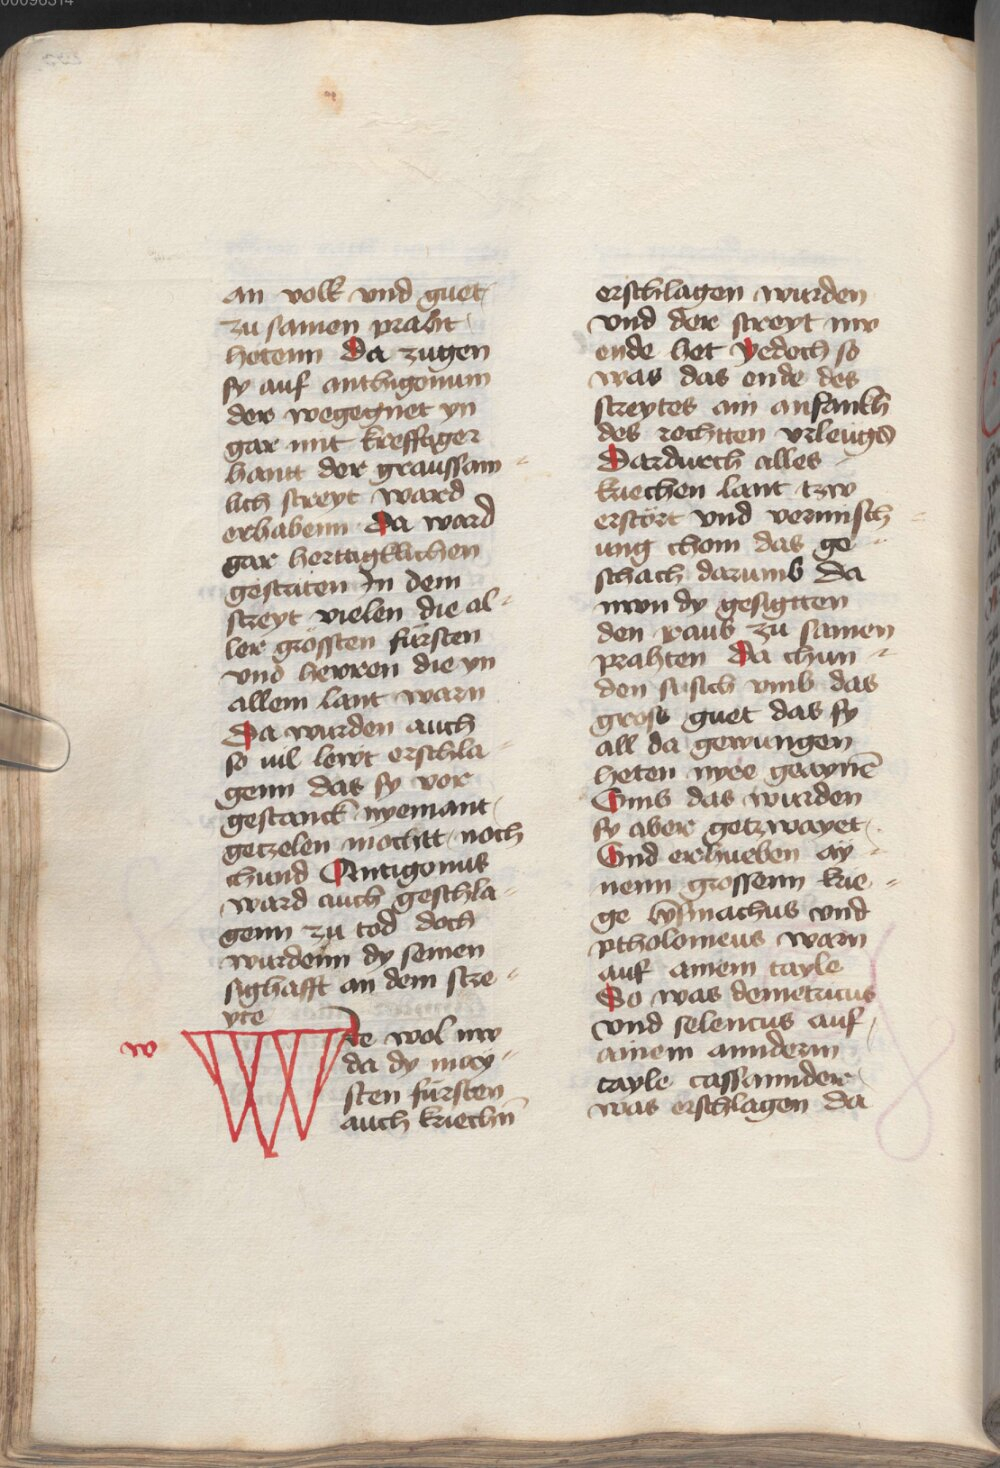 an volk vnd guet
zu samen praht
hetenn Da zugen
sy auf anthigonum
der wegegnet yn
gar mit krefftiger
hantt der graussam
lich streyt ward
erhabenn Da ward
gar herttigklichen
gestriten In dem
streyt vielen die al-
ler grössten fürsten
vnd herren die yn
allem lant warn
Da wurden auch
so uil lewt erschla-
genn das sy vor
gestanck nyemant
getzelen mochtt noch
chund Antigonus
ward auch geschla-
genn zu tod doch
wurdenn dy seinen
sighafft an dem stre-
yte
w
Ie wol nw
da dy mey-
sten fürsten
auch kriechn̄
erschlagen wurden
vnd der streyt nw
ende het yedoch so
was das ende des
streytes ain anfankh
des rechtten vrleugs
Dardurch alles
kriechen lant tzw
erstört vnd vermisch-
ung chom das ge-
schach darumb Da
nwn dy gesigtten
den raub zu samen
prahten Da chun-
den si sich vmb das
gross guet das sy
all da gewungen
heten nye geaynē
Vmb das wurden
sy aber getzwayet
Vnd erhueben ay-
nenn grossenn krie-
ge lysimachus vnd
ptholomeus warn
auf ainem tayle
So was demetrius
vnd seleucus auf
ainem annderm
tayle cassannder
was erschlagen da